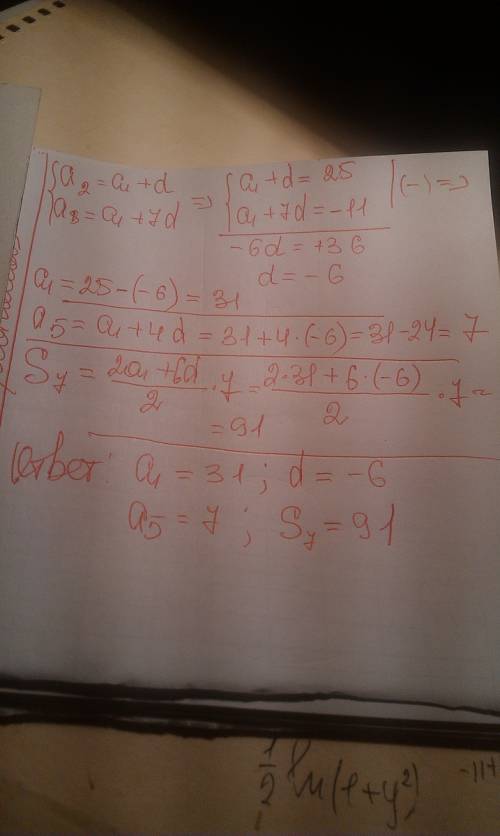 {a₂ = a₁ + d => {a₁ + d = 25 |(-) =>
{a₈ = a₁ + 7d {a₁ + 7d = -11
-6d = +36
d = -6
a₁ = 25 - (-6) = 31
a₅ = a₁ + 4d = 31 + 4·(-6) = 31 - 24 = 7
S₇ = (2a₁ + 6d)/2 · 7 = (2·31 + 6·(-6))/2 · 7 =
= 91
Ответ: a₁ = 31; d = -6
a₅ = 7; S₇ = 91
1/2 ln(1+y²)